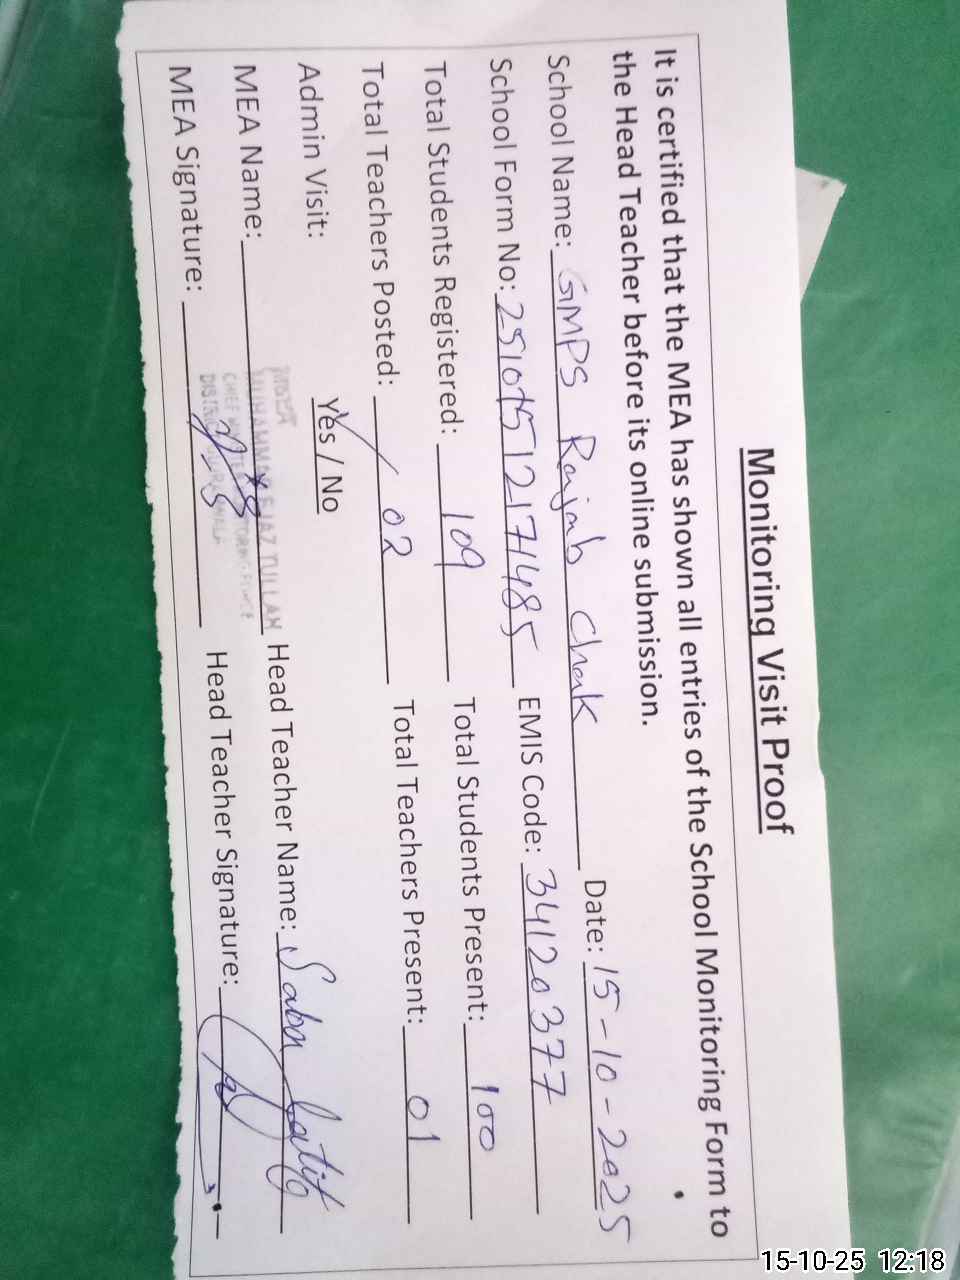 Monitoring Visit Proof
It is certified that the MEA has shown all entries of the School Monitoring Form to
the Head Teacher before its online submission.
School Name: GMPS Rajab Chak Date: 15-10-2025
School Form No: EMIS Code: 34120377
Total Students Registered: 109 Total Students Present: 100
Total Teachers Posted: 02 Total Teachers Present: 01
Admin Visit: Yes / No
MEA Name: Head Teacher Name: Latif
MEA Signature: Head Teacher Signature:
15-10-25 12:18